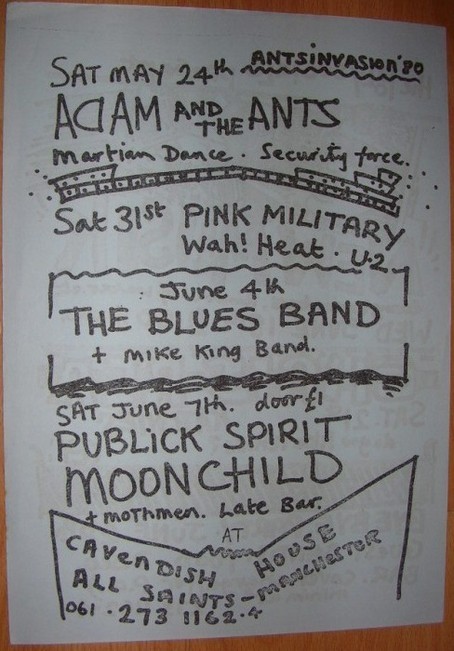 SAT MAY 24th ANTSINVASION '80
ADAM AND THE ANTS
Martian Dance. Security force.
Sat 31st PINK MILITARY
Wah! Heat. U-2.
June 4th
THE BLUES BAND
+ mike King Band.
SAT June 7th. door £1
PUBLICK SPIRIT
MOONCHILD
+ mothmen. Late Bar.
AT
CAVENDISH HOUSE
ALL SAINTS - MANCHESTER
061 · 273 1162.4